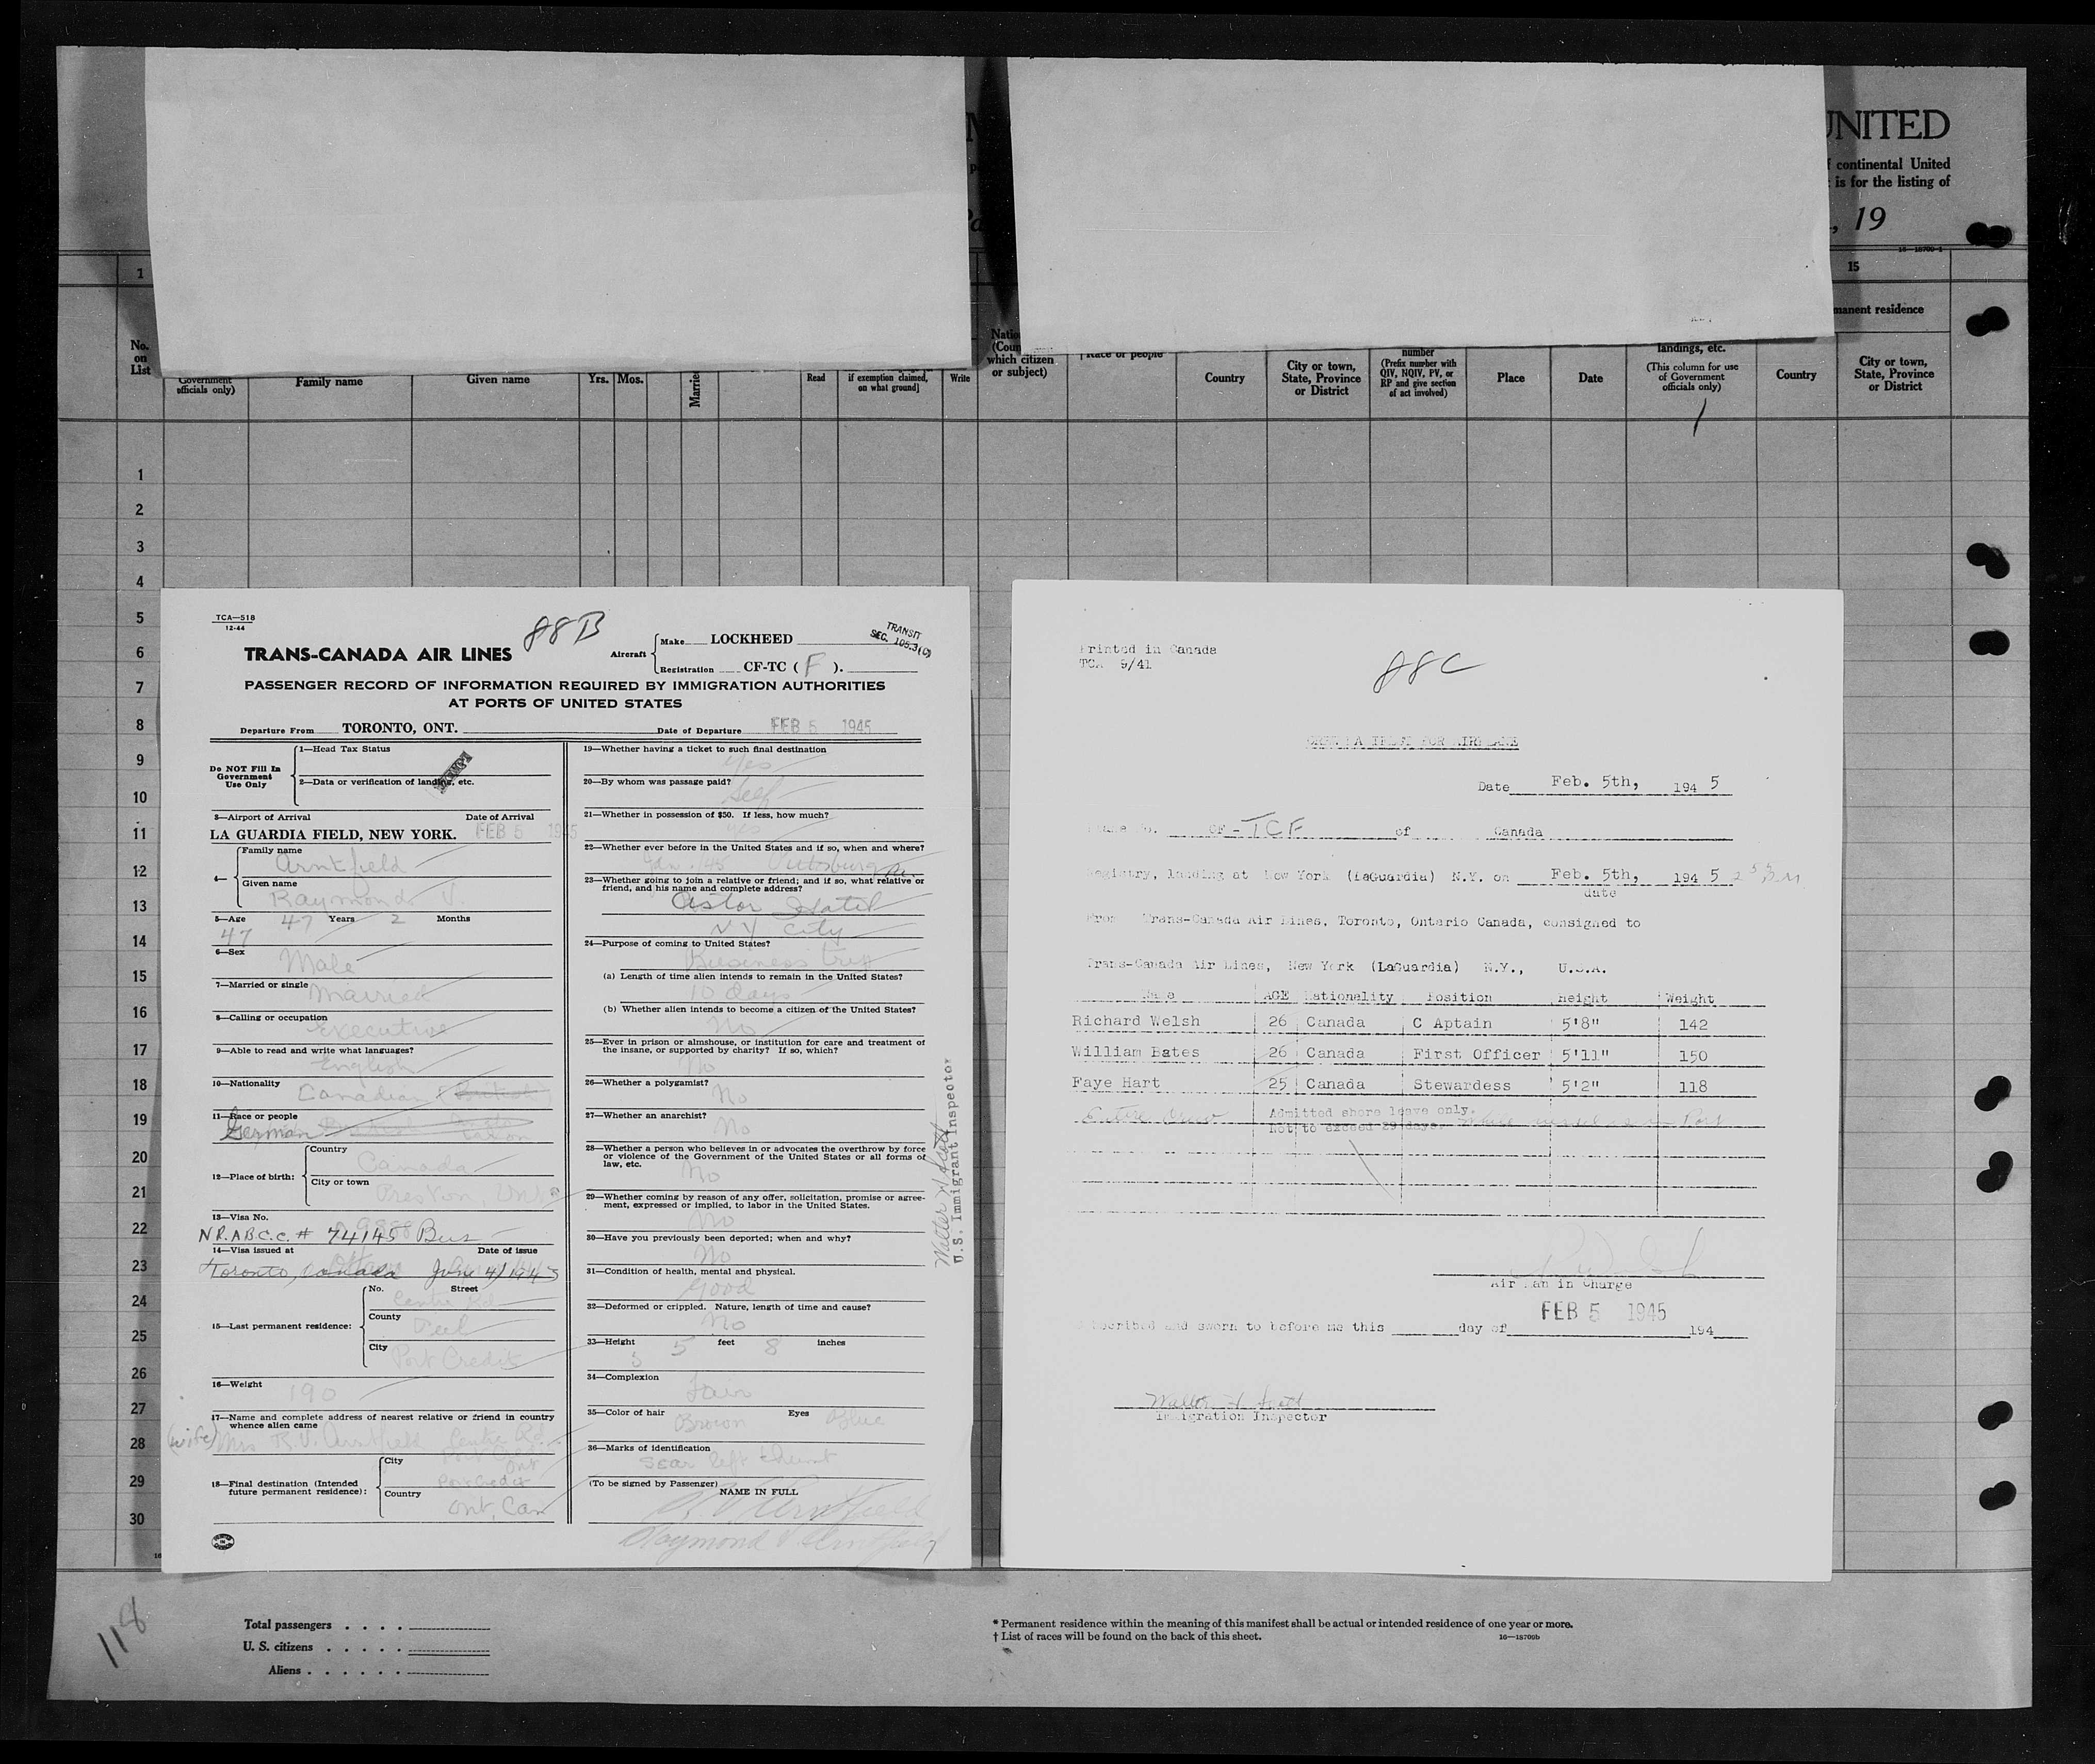 UNITED
continental United
is for the listing of
, 19
16—18709-1
1
15
manent residence
No.
on
List
Government
officials only)
Family name
Given name
Yrs.
Mos.
Marrie
Read
if exemption claimed,
on what ground]
Write
Natio
(Coun
which citizen
or subject)
† Race or people
Country
City or town,
State, Province
or District
number
(Prefix number with
QIV, NQIV, PV, or
RP and give section
of act involved)
Place
Date
landings, etc.
(This column for use
of Government
officials only)
Country
City or town,
State, Province
or District
1
2
3
4
5
6
7
8
9
10
11
12
13
14
15
16
17
18
19
20
21
22
23
24
25
26
27
28
29
30
TCA—518
12-44
88B
TRANS-CANADA AIR LINES
Aircraft
Make LOCKHEED
Registration CF-TC ( F ).
TRANSIT
SEC. 105.3(C)
PASSENGER RECORD OF INFORMATION REQUIRED BY IMMIGRATION AUTHORITIES
AT PORTS OF UNITED STATES
Departure From TORONTO, ONT. Date of Departure FEB 5 1945
Do NOT Fill In
Government
Use Only
1—Head Tax Status
2—Data or verification of landing, etc.
3—Airport of Arrival Date of Arrival
LA GUARDIA FIELD, NEW YORK. FEB 5 1945
4—
Family name
Arntfield
Given name
Raymond V.
5—Age 47 Years 2 Months
47
6—Sex
Male
7—Married or single
Married
8—Calling or occupation
Executive
9—Able to read and write what languages?
English
10—Nationality
Canadian (British)
11—Race or people
German
12—Place of birth:
Country
Canada
City or town
Preston, Ont.
13—Visa No.
N.R.A.B.C.C. # 74145 Bus
14—Visa issued at Date of issue
Toronto, Canada June 4/1943
15—Last permanent residence:
No. Street
Centre Rd
County
Peel
City
Port Credit
16—Weight
190
17—Name and complete address of nearest relative or friend in country
whence alien came
(wife) Mrs R.V. Arntfield Centre Rd.
Port Credit
Ont
18—Final destination (Intended
future permanent residence):
City
Port Credit
Country
Ont, Can
19—Whether having a ticket to such final destination
Yes
20—By whom was passage paid?
Self
21—Whether in possession of $50. If less, how much?
yes
22—Whether ever before in the United States and if so, when and where?
Jan. /45 Pittsburg Pa.
23—Whether going to join a relative or friend; and if so, what relative or
friend, and his name and complete address?
Astor Hotel
N Y City
24—Purpose of coming to United States?
Business trip
(a) Length of time alien intends to remain in the United States?
10 days
(b) Whether alien intends to become a citizen of the United States?
No
25—Ever in prison or almshouse, or institution for care and treatment of
the insane, or supported by charity? If so, which?
No
26—Whether a polygamist?
No
27—Whether an anarchist?
No
28—Whether a person who believes in or advocates the overthrow by force
or violence of the Government of the United States or all forms of
law, etc.
No
29—Whether coming by reason of any offer, solicitation, promise or agree-
ment, expressed or implied, to labor in the United States.
No
30—Have you previously been deported; when and why?
No
31—Condition of health, mental and physical.
Good
32—Deformed or crippled. Nature, length of time and cause?
No
33—Height 5 feet 8 inches
34—Complexion
Fair
35—Color of hair Eyes
Brown Blue
36—Marks of identification
Scar left thumb
(To be signed by Passenger)
NAME IN FULL
R. V. Arntfield
Raymond V Arntfield
Walter H Scott
U.S. Immigrant Inspector
Printed in Canada
TCA 9/41
88C
CREW MANIFEST FOR AIRPLANE
Date Feb. 5th, 194 5
Plane No. CF-TCF of Canada
Registry, landing at New York (LaGuardia) N.Y. on Feb. 5th, 194 5
date
From Trans-Canada Air Lines, Toronto, Ontario Canada, consigned to
Trans-Canada Air Lines, New York (LaGuardia) N.Y., U.S.A.
Name AGE Nationality Position Height Weight
Richard Welsh 26 Canada C Aptain 5'8" 142
William Bates 26 Canada First Officer 5'11" 150
Faye Hart 25 Canada Stewardess 5'2" 118
Entire crew Admitted shore leave only.
Not to exceed 29 days. while airplane in Port
R Welsh
Air Man in Charge
FEB 5 1945
Subscribed and sworn to before me this day of 194
Walter H Scott
Immigration Inspector
118
Total passengers . . . .
U. S. citizens . . . . .
Aliens . . . . . .
* Permanent residence within the meaning of this manifest shall be actual or intended residence of one year or more.
† List of races will be found on the back of this sheet.
16—18709b